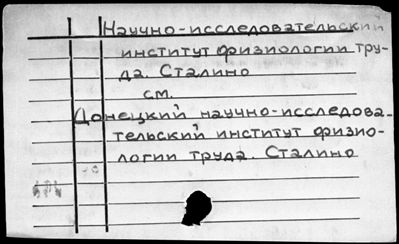 Научно-исследовательский
институт физиологии тру-
да. Сталино
см.
Донецкий научно-исследова-
тельский институт физио-
логии труда. Сталино